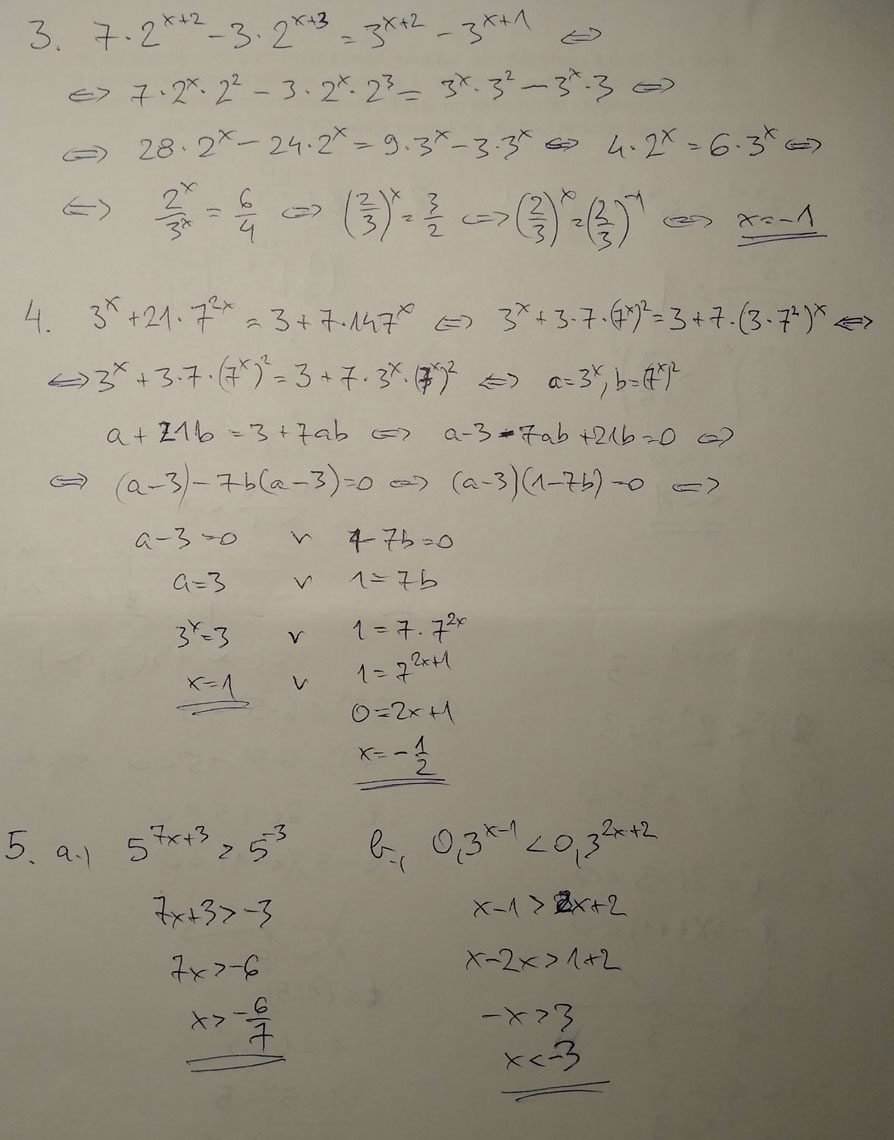 3. 7·2^{x+2} - 3·2^{x+3} = 3^{x+2} - 3^{x+1} ⇔
⇔ 7·2^x·2^2 - 3·2^x·2^3 = 3^x·3^2 - 3^x·3 ⇔
⇔ 28·2^x - 24·2^x = 9·3^x - 3·3^x ⇔ 4·2^x = 6·3^x ⇔
⇔ \frac{2^x}{3^x} = \frac{6}{4} ⇔ (\frac{2}{3})^x = \frac{3}{2} ⇔ (\frac{2}{3})^x = (\frac{2}{3})^{-1} ⇔ x=-1
4. 3^x + 21·7^{2x} = 3 + 7·147^x ⇔ 3^x + 3·7·(7^x)^2 = 3 + 7·(3·7^2)^x ⇔
⇔ 3^x + 3·7·(7^x)^2 = 3 + 7·3^x·(7^x)^2 ⇔ a=3^x, b=(7^x)^2
a + 21b = 3 + 7ab ⇔ a-3-7ab+21b=0 ⇔
⇔ (a-3)-7b(a-3)=0 ⇔ (a-3)(1-7b)=0 ⇔
a-3=0 v 1-7b=0
a=3 v 1=7b
3^x=3 v 1=7·7^{2x}
x=1 v 1=7^{2x+1}
0=2x+1
x=-\frac{1}{2}
5. a., 5^{7x+3} > 5^{-3} b., 0,3^{x-1} < 0,3^{2x+2}
7x+3>-3 x-1>2x+2
7x>-6 x-2x>1+2
x>-\frac{6}{7} -x>3
x<-3